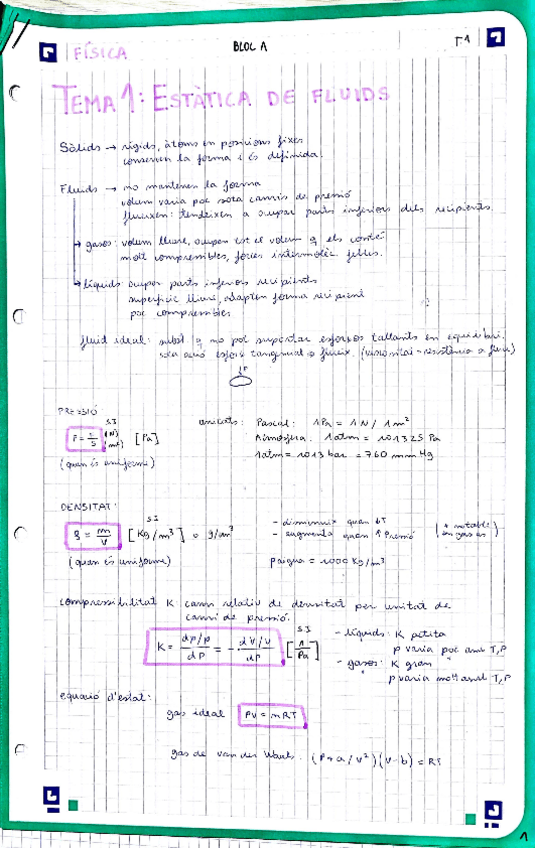 FÍSICA
BLOC A
T1
TEMA 1: ESTÀTICA DE FLUIDS
Sòlids → rígids, àtoms en posicions fixes
conserven la forma i és definida.
Fluids → no mantenen la forma
volum varia poc sota canvis de pressió
flueixen: tendeixen a ocupar parts inferiors dels recipients.
→ gasos: volum lliure, ocupen tot el volum q els conté
molt compressibles, forces intermolèc. febles.
→ líquids: ocupar parts inferiors recipients
superfície lliure, adapten forma recipient
poc compressibles
fluid ideal: subst q no pot suportar esforços tallants en equilibri.
sota acció esforç tangencial → flueix. (viscositat = resistència a fluir)
PRESSIÓ
P = F/S (N) (m²) S.I [Pa]
(quan és uniforme)
unitats: Pascal: 1Pa = 1N / 1m²
Atmosfera: 1atm = 101325 Pa
1atm = 1013 bar = 760 mmHg
DENSITAT:
ρ = m/V S.I [Kg/m³] o g/cm³
(quan és uniforme)
- disminuix quan ↑T
- augmenta quan ↑Pressió (+ notable en gasos)
ρaigua = 1000 Kg/m³
compressibilitat K: canvi relatiu de densitat per unitat de
canvi de pressió.
K = dρ/ρ / dP = - dV/V / dP S.I [1/Pa]
- líquids: K petita
ρ varia poc amb T, P
- gasos: K gran
ρ varia molt amb T, P
equació d'estat:
gas ideal PV = nRT
gas de van der Waals: (P + a/V²)(V-b) = RT
1